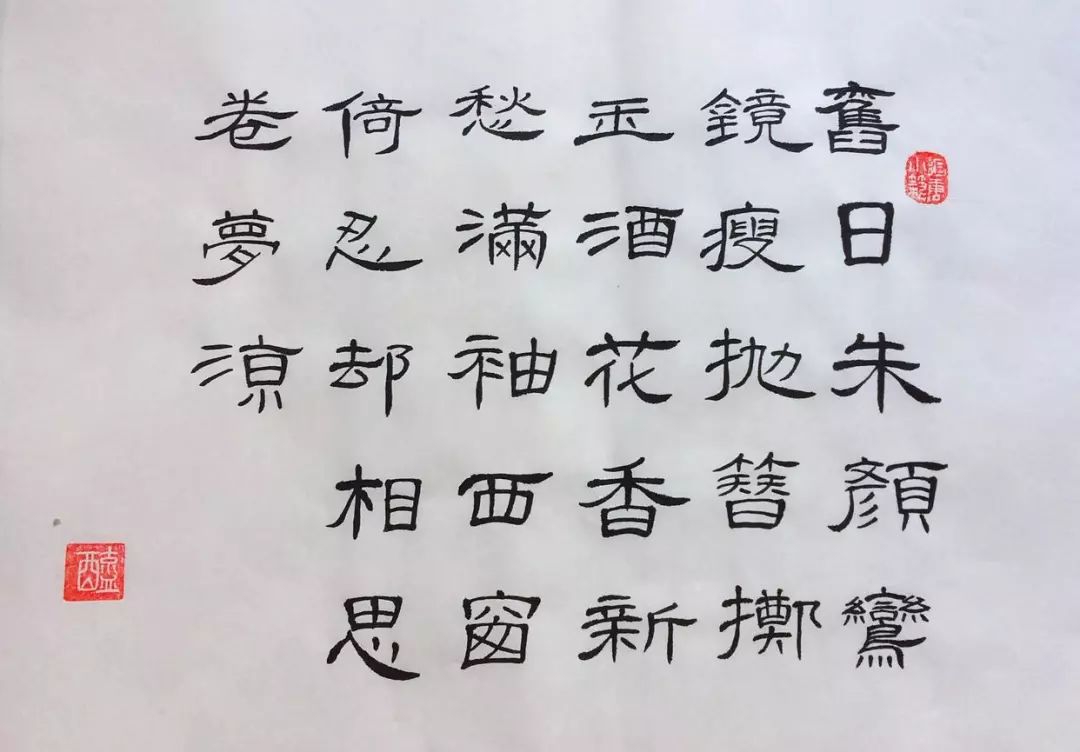 舊日朱顏鸞
鏡瘦抛簪擲
玉酒花香新
愁滿袖西窗
倚忍却相思
卷夢涼